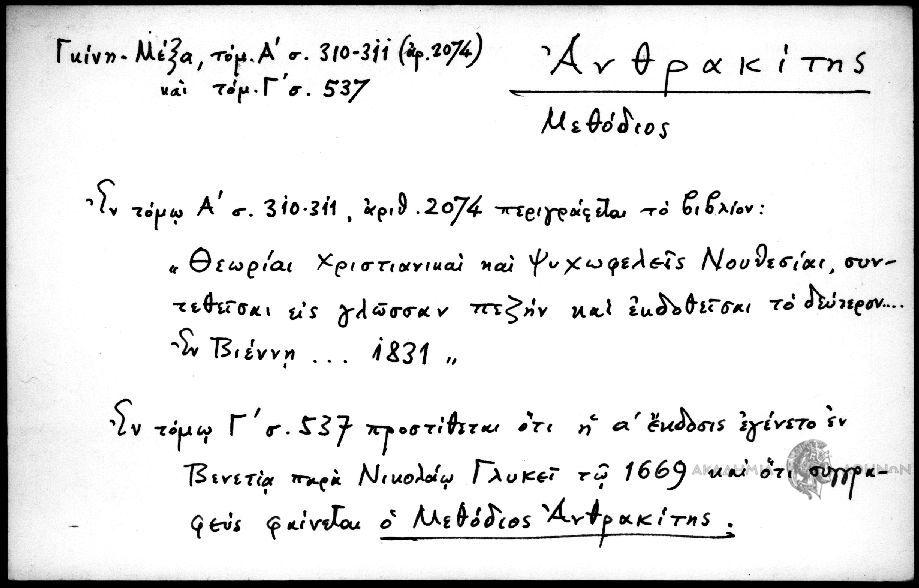 Γκίνη-Μέξα, τόμ. Α' σ. 310-311 (ἀρ. 2074)
καὶ τόμ. Γ' σ. 537
Ἀνθρακίτης
Μεθόδιος
Ἐν τόμῳ Α' σ. 310-311, ἀριθ. 2074 περιγράφεται τὸ βιβλίον:
„ Θεωρίαι Χριστιανικαὶ καὶ Ψυχωφελεῖς Νουθεσίαι, συν-
τεθεῖσαι εἰς γλῶσσαν πεζὴν καὶ ἐκδοθεῖσαι τὸ δεύτερον....
Ἐν Βιέννῃ ... 1831 „
Ἐν τόμῳ Γ' σ. 537 προστίθεται ὅτι ἡ α' ἔκδοσις ἐγένετο ἐν
Βενετίᾳ παρὰ Νικολάῳ Γλυκεῖ τῷ 1669 καὶ ὅτι συγγρα-
φεὺς φαίνεται ὁ Μεθόδιος Ἀνθρακίτης.